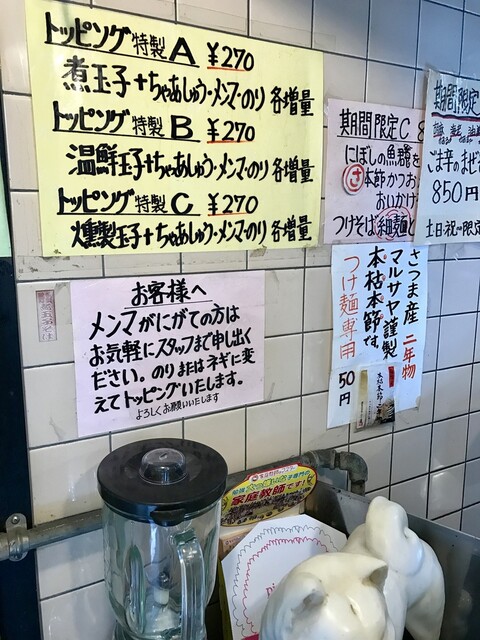 トッピング特製A ¥270
煮玉子+ちゃあしゅう・メンマ・のり 各増量
トッピング特製B ¥270
温鮮玉子+ちゃあしゅう・メンマ・のり 各増量
トッピング特製C ¥270
燻製玉子+ちゃあしゅう・メンマ・のり 各増量
期間限定C
にぼしの魚醬を
本節かつお
おいかけ
つけそば 細麺
期間限定
ごま辛のまぜ
850円
土日・祝の限定
さつま産 二年物
マルサヤ謹製
本枯本節です。
つけ麺専用
50円
お客様へ
メンマがにがての方は
お気軽にスタッフまで申し出く
ださい。のりまたはネギに変
えてトッピングいたします。
よろしくお願いいたします
家庭教師です!